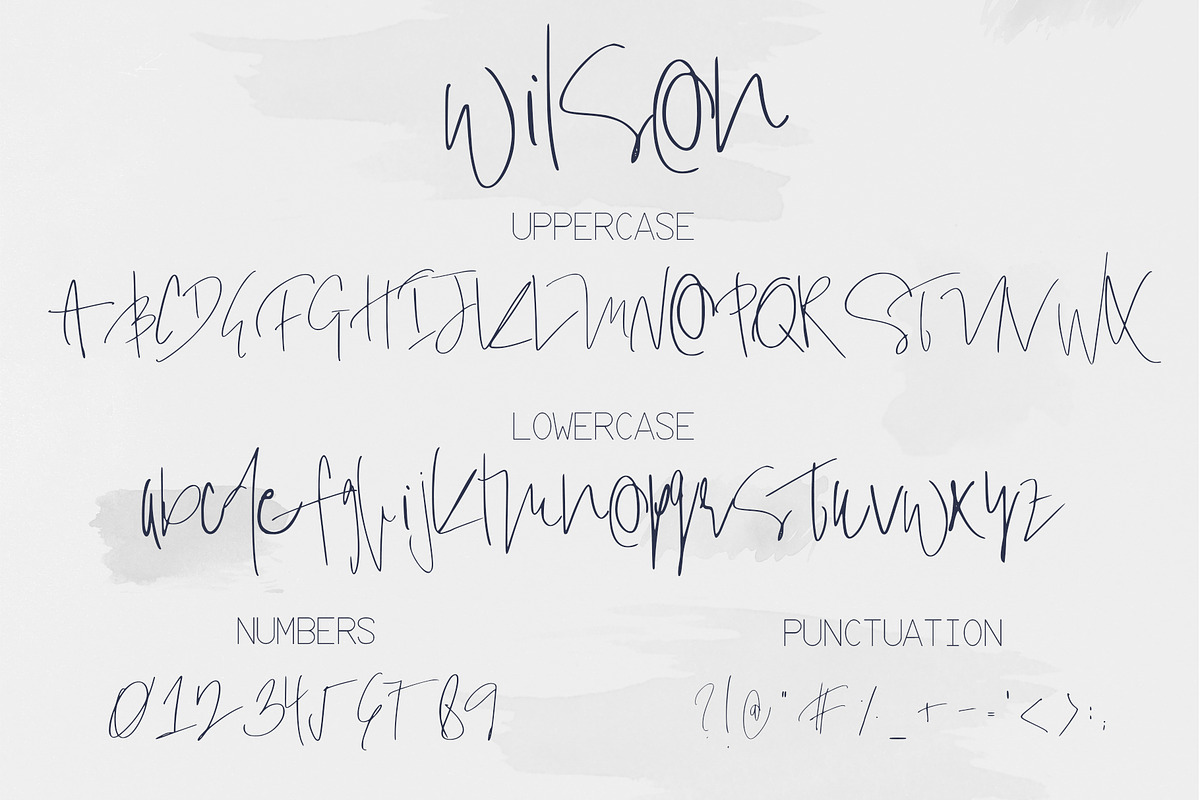 Wilson
UPPERCASE
A B C D E F G H I J K L Z M N O P Q R S T U V W X
LOWERCASE
a b c d e f g h i j k l z m n o p q r s t u v w x y z
NUMBERS
0 1 2 3 4 5 6 7 8 9
PUNCTUATION
? ! @ " # % _ + - = ' < > : ;